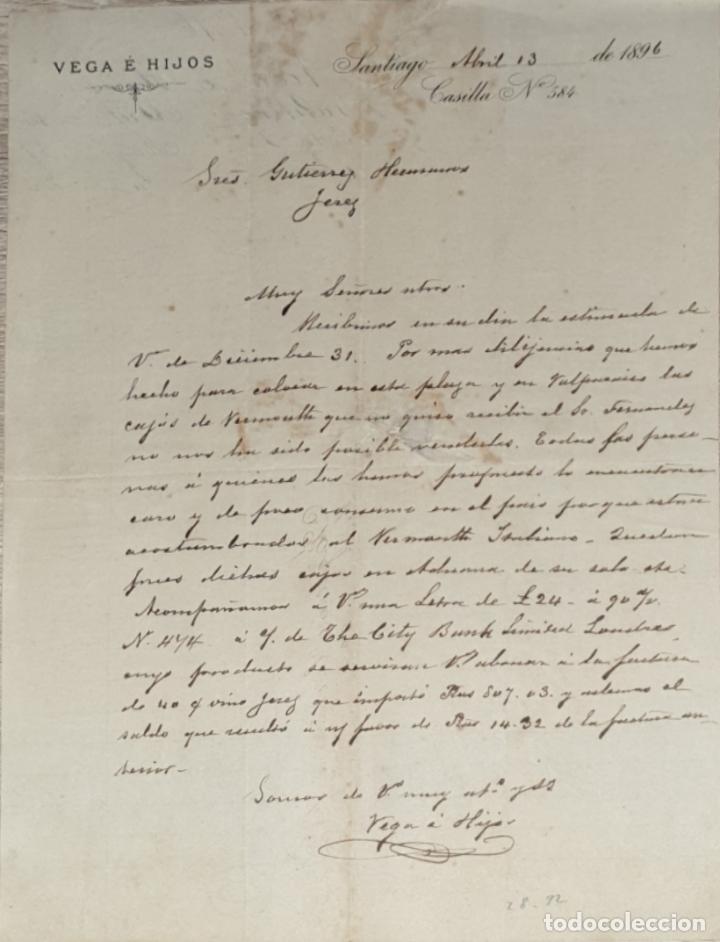 VEGA É HIJOS
Santiago Abril 13 de 1896
Casilla Nº 584
Sres. Gutierrez Hermanos
Jerez
Muy Señores ntros.
Recibimos en su dia la estimada de
V. de Diciembre 31. Por mas dilijencias que hemos
hecho para colocar en esta plaza y en Valparaiso las
cajas de Vermouth que no quiso recibir el Sr. Fernandez
no nos ha sido posible venderlas. Todas las perso-
nas á quienes las hemos propuesto lo encuentran
caro y de poco consumo en el pais porque estan
acostumbrados al Vermouth Italiano - Quedan
pues dichas cajas en Aduana de su sola cta.
Acompañamos á Vs una Letra de £24 - á 90 d/v.
N. 474 á c/. de The City Bank Limited Londres,
cuyo producto se serviran Vs abonar á la factura
de 40 c vino Jerez que importó Ptas 807.03. y ademas el
saldo que resultó á n/ favor de Ptas 14.32 de la factura an-
terior -
Somos de Vs muy attos y SS
Vega é Hijos
28-92
todocoleccion